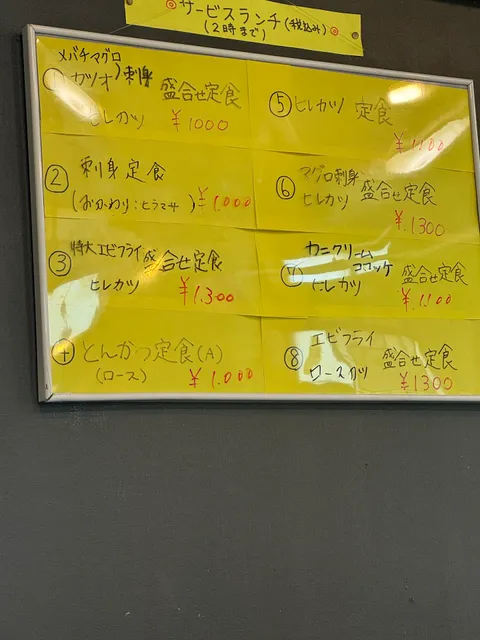 ◎サービスランチ(税込み)◎
(2時まで)
メバチマグロ
① カツオ 刺身 盛合せ定食
ヒレカツ ¥1000
② 刺身定食
(おかわり:ヒラマサ) ¥1.000
③ 特大エビフライ 盛合せ定食
ヒレカツ ¥1.300
④ とんかつ定食(A)
(ロース) ¥1.000
⑤ ヒレカツ 定食
¥1.100
⑥ マグロ刺身 盛合せ定食
ヒレカツ
¥.1300
カニクリーム
コロッケ
⑦ ヒレカツ 盛合せ定食
¥.1.100
エビフライ
⑧ ロースカツ 盛合せ定食
¥1300